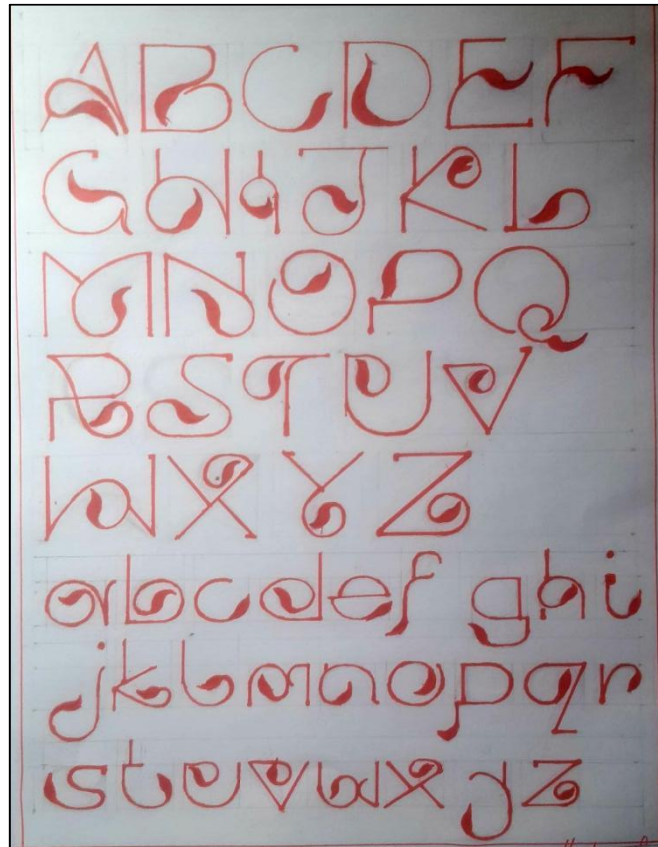 A B C D E F
G H I J K L
M N O P Q
R S T U V
W X Y Z
a b c d e f g h i
j k l m n o p q r
s t u v w x y z